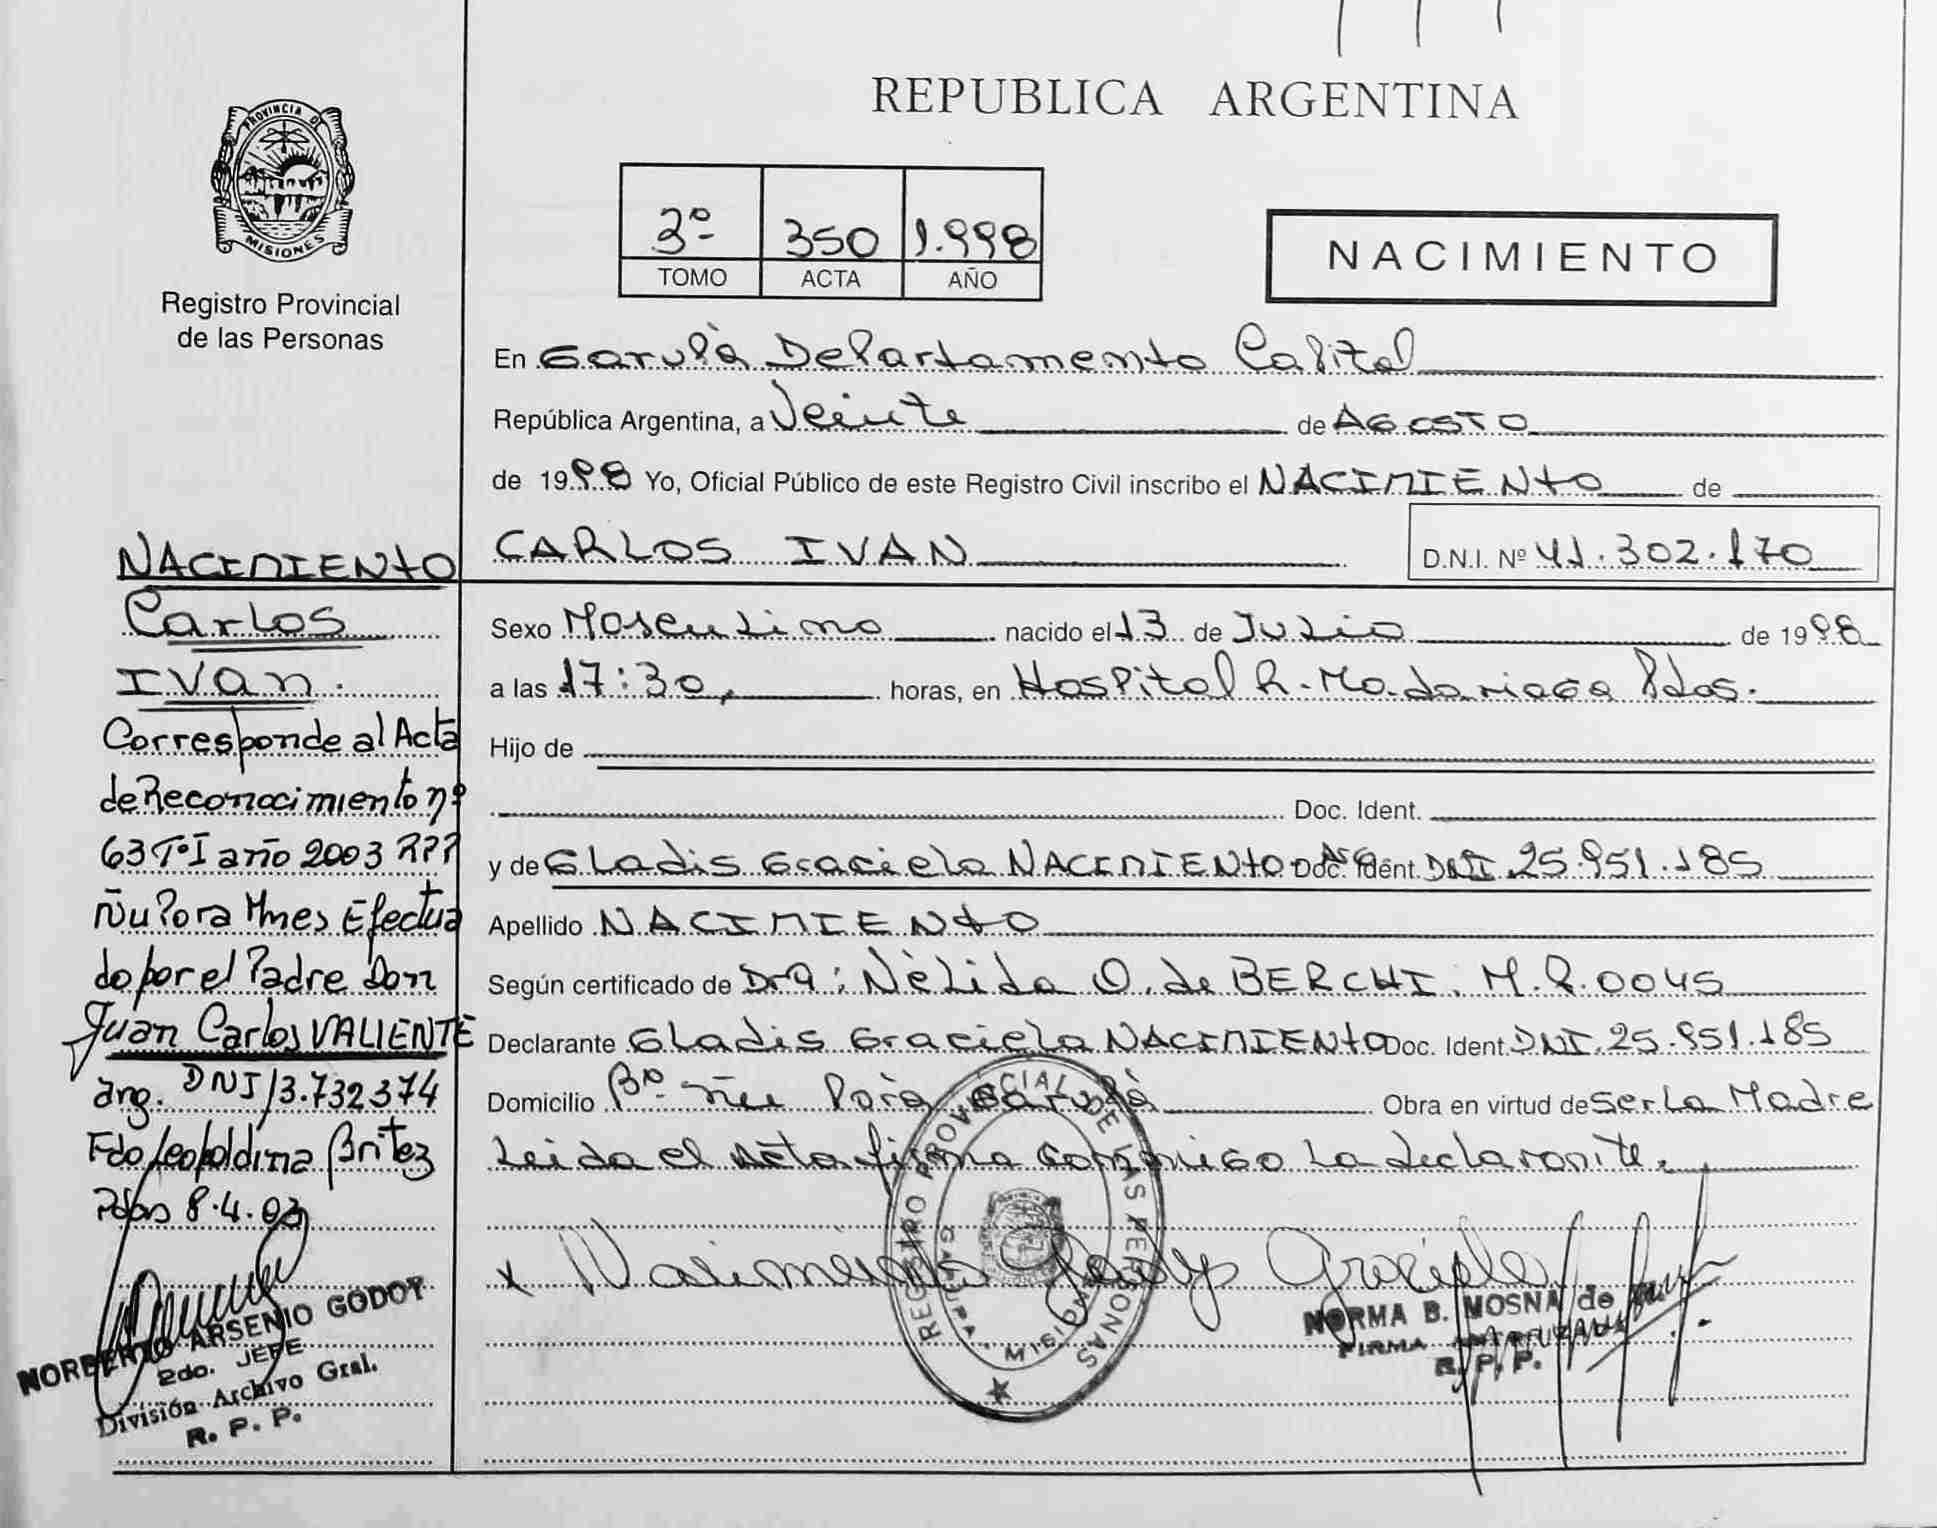 REPUBLICA ARGENTINA
PROVINCIA DE
MISIONES
Registro Provincial
de las Personas
3º 350 1.998
TOMO ACTA AÑO
NACIMIENTO
En Garupà Departamento Capital
República Argentina, a Veinte de AGOSTO
de 1998 Yo, Oficial Público de este Registro Civil inscribo el NACIMIENTO de
CARLOS IVAN D.N.I. Nº 41.302.170
Sexo Masculino nacido el 13 de Julio de 1998
a las 17:30, horas, en Hospital R. Madariaga Pdas.
Hijo de
Doc. Ident.
y de Gladis Graciela NACIMIENTO Arg Doc. Ident. DNI 25.951.185
Apellido NACIMIENTO
Según certificado de Dra: Nèlida O. de BERCHI. M.P.0045
Declarante Gladis Graciela NACIMIENTO Doc. Ident. DNI. 25.951.185
Domicilio Bº Ñu Porà Garupà Obra en virtud de ser La Madre
Leida el Acta firma conmigo La declarante.
x Nacimiento Gladys Graciela
REGISTRO PROVINCIAL DE LAS PERSONAS
MISIONES
NORMA B. MOSNA de
FIRMA AUTORIZADA
R. P. P.
NACIMIENTO
Carlos
IVan.
Corresponde al Acta
de Reconocimiento nº
63 Tº I año 2003 RPP
Ñu Pora Mnes Efectua
do por el Padre Don
Juan Carlos VALIENTE
arg. DNI 13.732374
Fdo Leopoldina Britez
Pdas 8.4.03
NORBERTO ARSENIO GODOY
2do. JEFE
División Archivo Gral.
R. P. P.